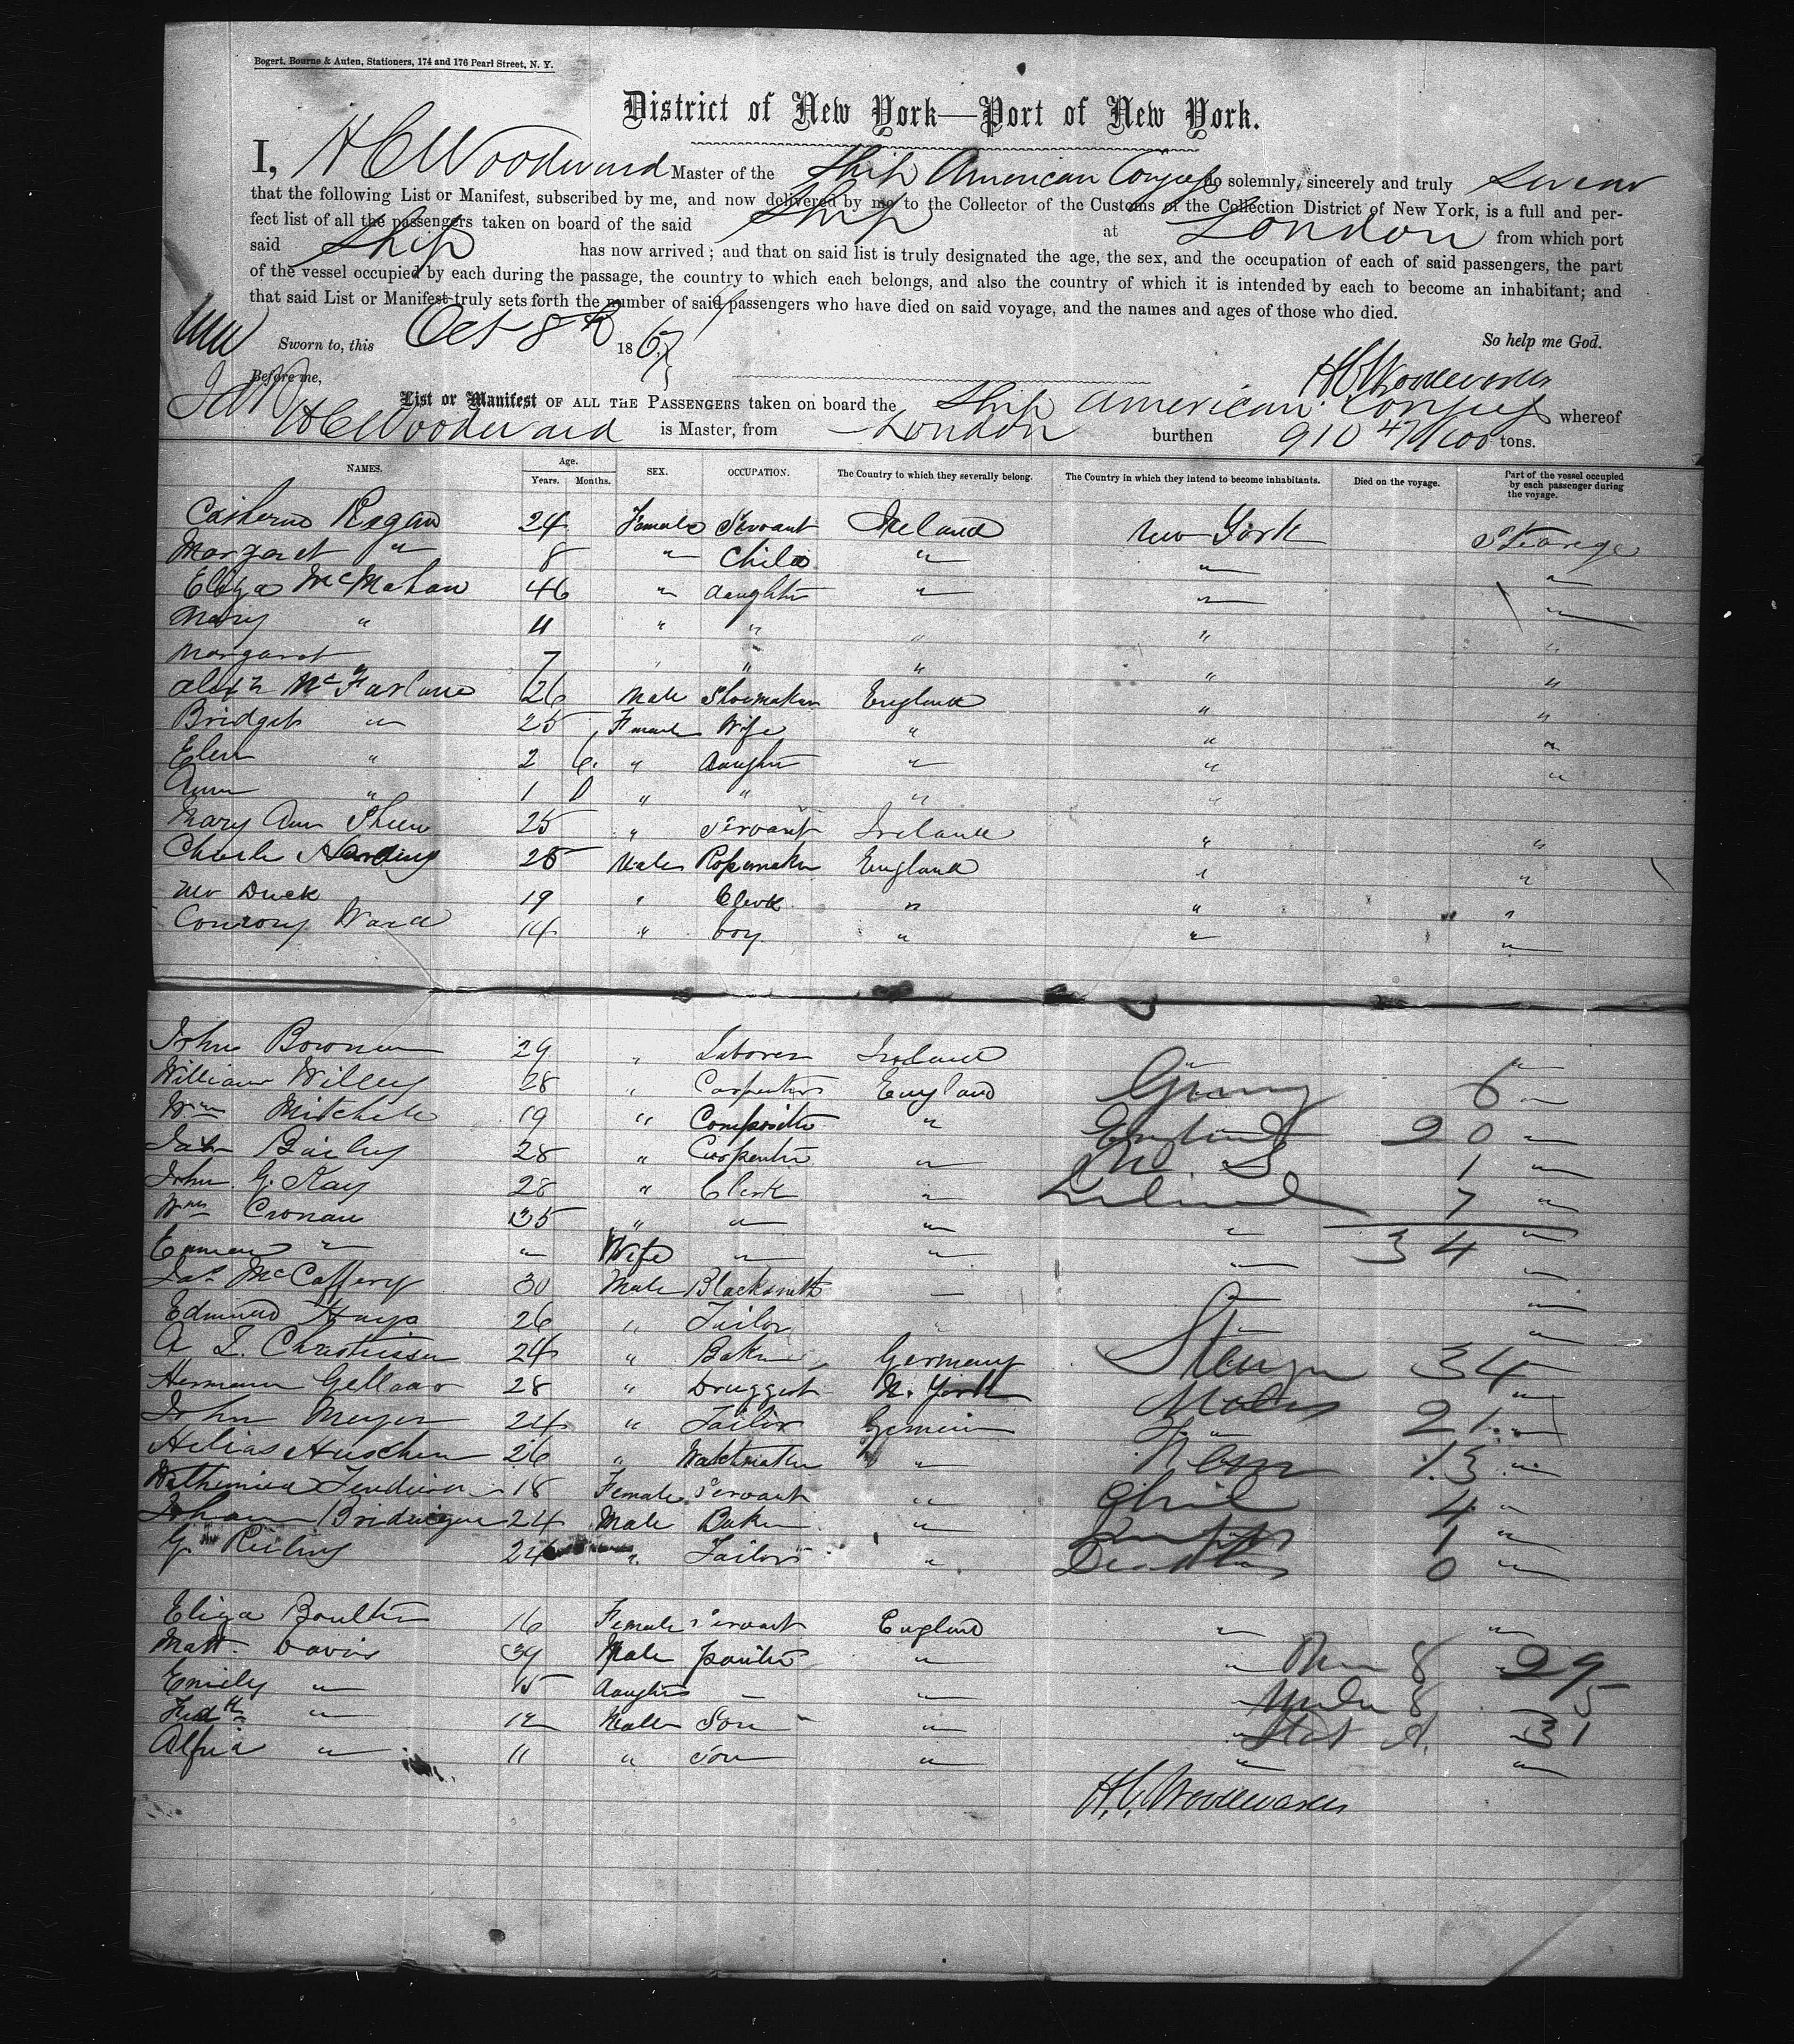 Bogert, Bourne & Auten, Stationers, 174 and 176 Pearl Street, N. Y.
District of New York—Port of New York.
I, H C Woodward Master of the Ship American Congress do solemnly, sincerely and truly swear
that the following List or Manifest, subscribed by me, and now delivered by me to the Collector of the Customs of the Collection District of New York, is a full and per-
fect list of all the passengers taken on board of the said Ship at London from which port
said Ship has now arrived; and that on said list is truly designated the age, the sex, and the occupation of each of said passengers, the part
of the vessel occupied by each during the passage, the country to which each belongs, and also the country of which it is intended by each to become an inhabitant; and
that said List or Manifest truly sets forth the number of said passengers who have died on said voyage, and the names and ages of those who died.
Sworn to, this Oct 8th 1867 So help me God.
Before me, H C Woodward
List or Manifest OF ALL THE PASSENGERS taken on board the Ship American Congress whereof
H C Woodward is Master, from London burthen 910 47/100 tons.
NAMES. Age. Years. Months. SEX. OCCUPATION. The Country to which they severally belong. The Country in which they intend to become inhabitants. Died on the voyage. Part of the vessel occupied by each passenger during the voyage.
Catherine Ragan 24 Female Servant Ireland New York Steerage
Margaret " 8 " Child " " "
Eliza McMahan 46 " daughter " " "
Mary " 11 " " " " "
Margaret " 7 " " " " "
Alexr McFarlane 26 Male Shoemaker England " "
Bridget " 25 Female Wife " " "
Elen " 2 6 " daughter " " "
Ann " 1 " " " "
Mary Ann 25 " Servant Ireland " "
Charles Harding 25 Male Ropemaker England " "
Duck 19 " Clerk " " "
Conrory Ward 14 " boy " " "
John Bowman 29 " Laborer Ireland "
William Willey 28 " Carpenter England Gemy 6 "
Wm Mitchell 19 " Compositor " England 20 "
Bailey 28 " Carpenter " U. S. 1 "
John G. Kay 28 " Clerk " Ireland 7 "
Wm Cronan 35 " " " " 34 "
" " Wife " " " "
Jas McCaffery 30 Male Blacksmith " "
Edmund Hays 26 " Tailor " " "
A L. Christensen 24 " Baker Germany Steerage 34
Hermann 28 " Druggist N. York Males 21 "
John Meyer 24 " Tailor " "
26 " Watchmaker " Fem 13 "
18 Female Servant " Chil 4 "
24 Male Baker " 1 "
G. Reiling 24 " Tailor " Deaths 0 "
Eliza Boulter 16 Female Servant England " "
Matt Davis 39 Male " " Over 8 29
Emily " 15 daughter " " Under 8 5
" 12 Male Son " " Stat A. 31
" 11 " Son " " "
H. C. Woodward